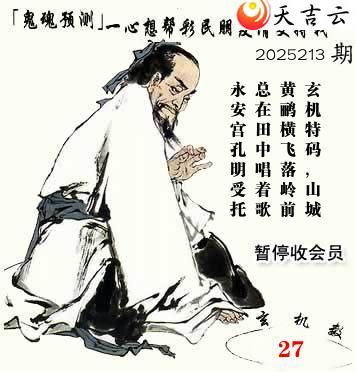 天吉云
「鬼魂预测」一心想帮彩民朋
2025213 期
玄机特码，山城
黄鹂横飞落岭前
总在田中唱着歌
永安宫孔明受托
暂停收会员
玄机
27